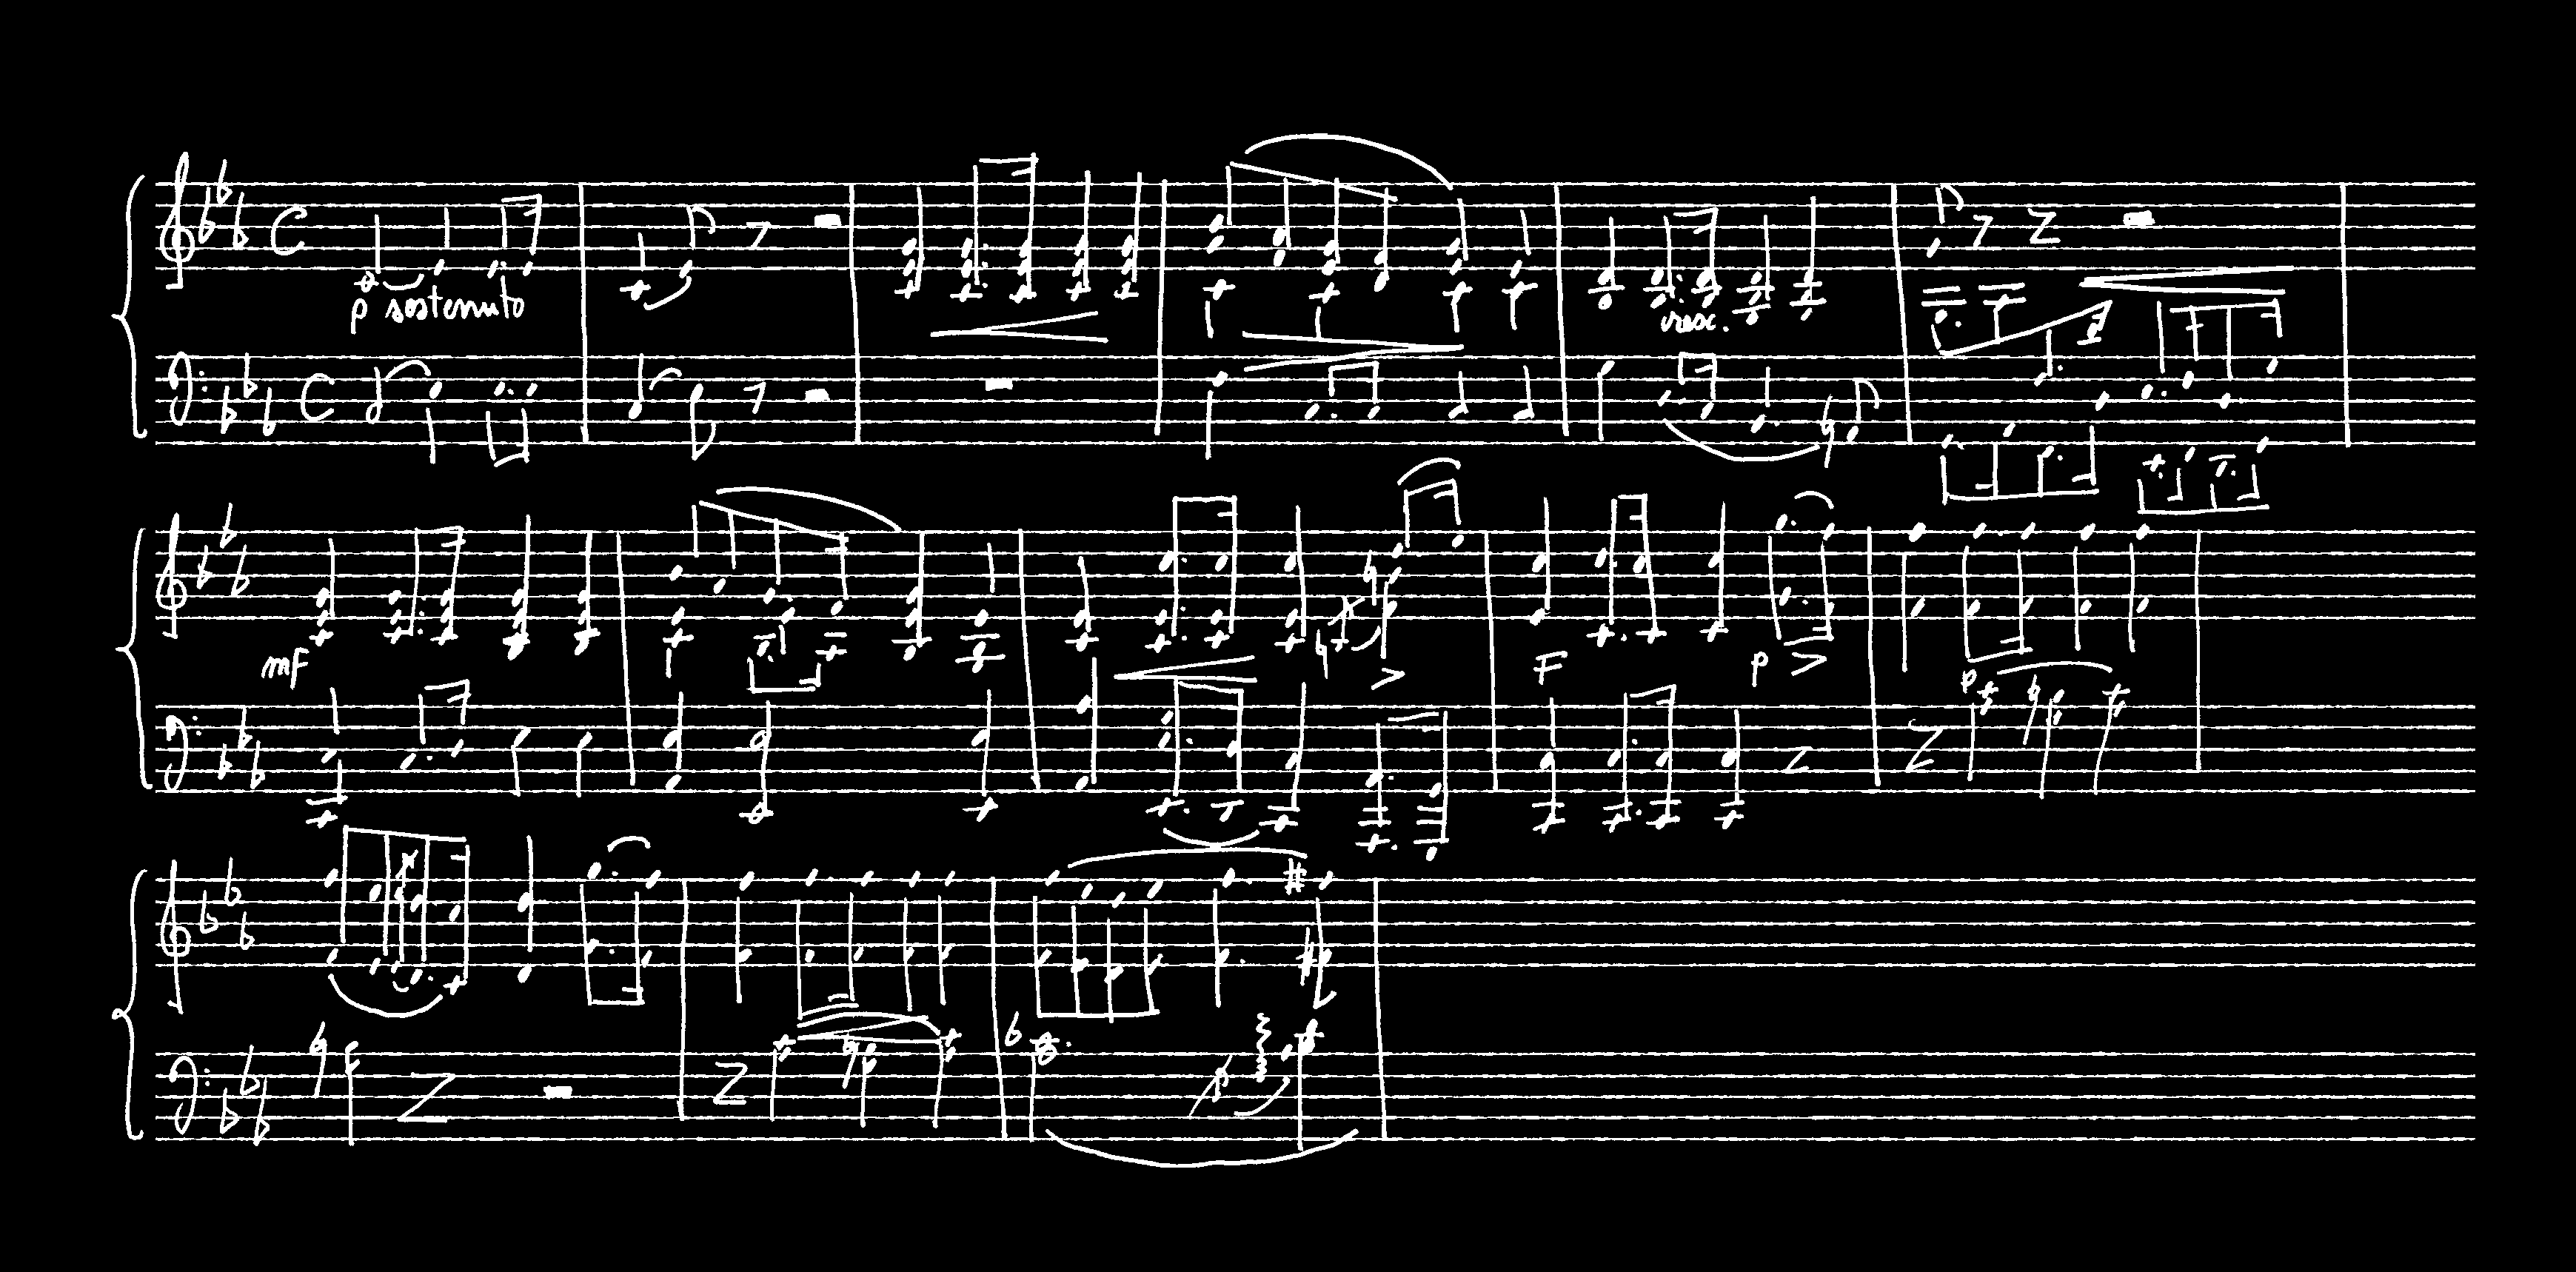 p sostenuto
cresc.
mF
F
p
p